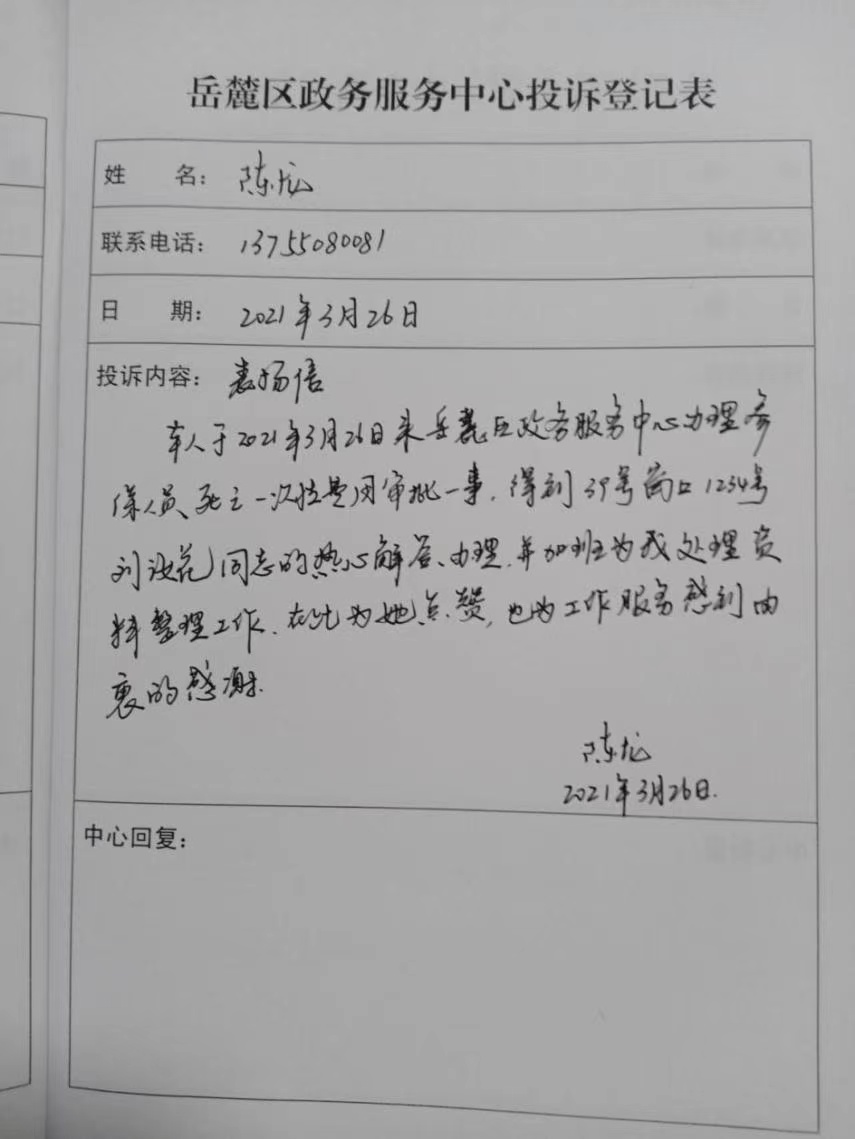 岳麓区政务服务中心投诉登记表
姓 名： 陈龙
联系电话： 13755080081
日 期： 2021年3月26日
投诉内容： 表扬信
本人于2021年3月26日来岳麓区政务服务中心办理参
保人员死亡一次性费用审批一事，得到39号窗口1234号
刘汝花同志的热心解答、办理，并加班为我处理资
料整理工作，在此为她点赞，也为工作服务感到由
衷的感谢．
陈龙
2021年3月26日．
中心回复：